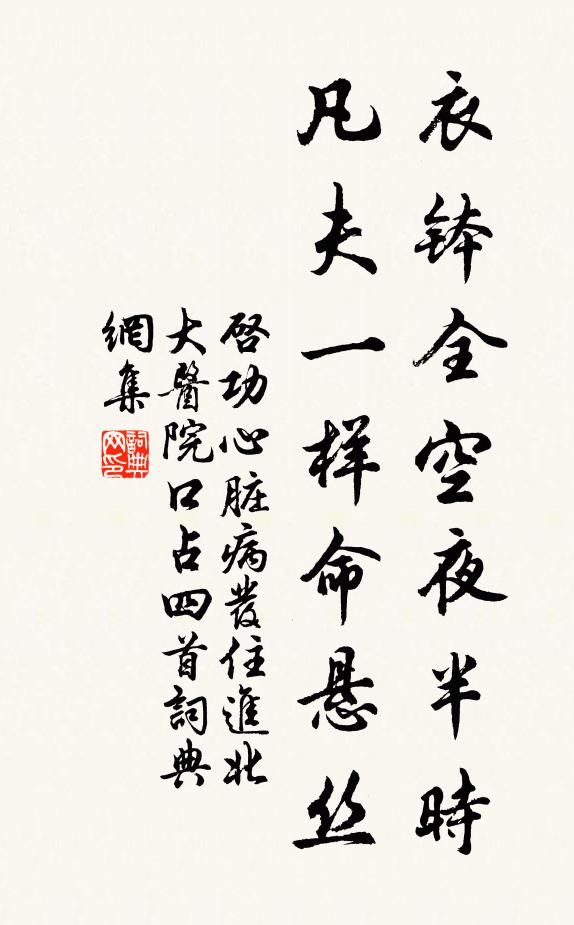 衣钵全空夜半時
凡夫一样命悬丝
啓功心脏病發住進北
大醫院口占四首詞典
網集
詞典网印